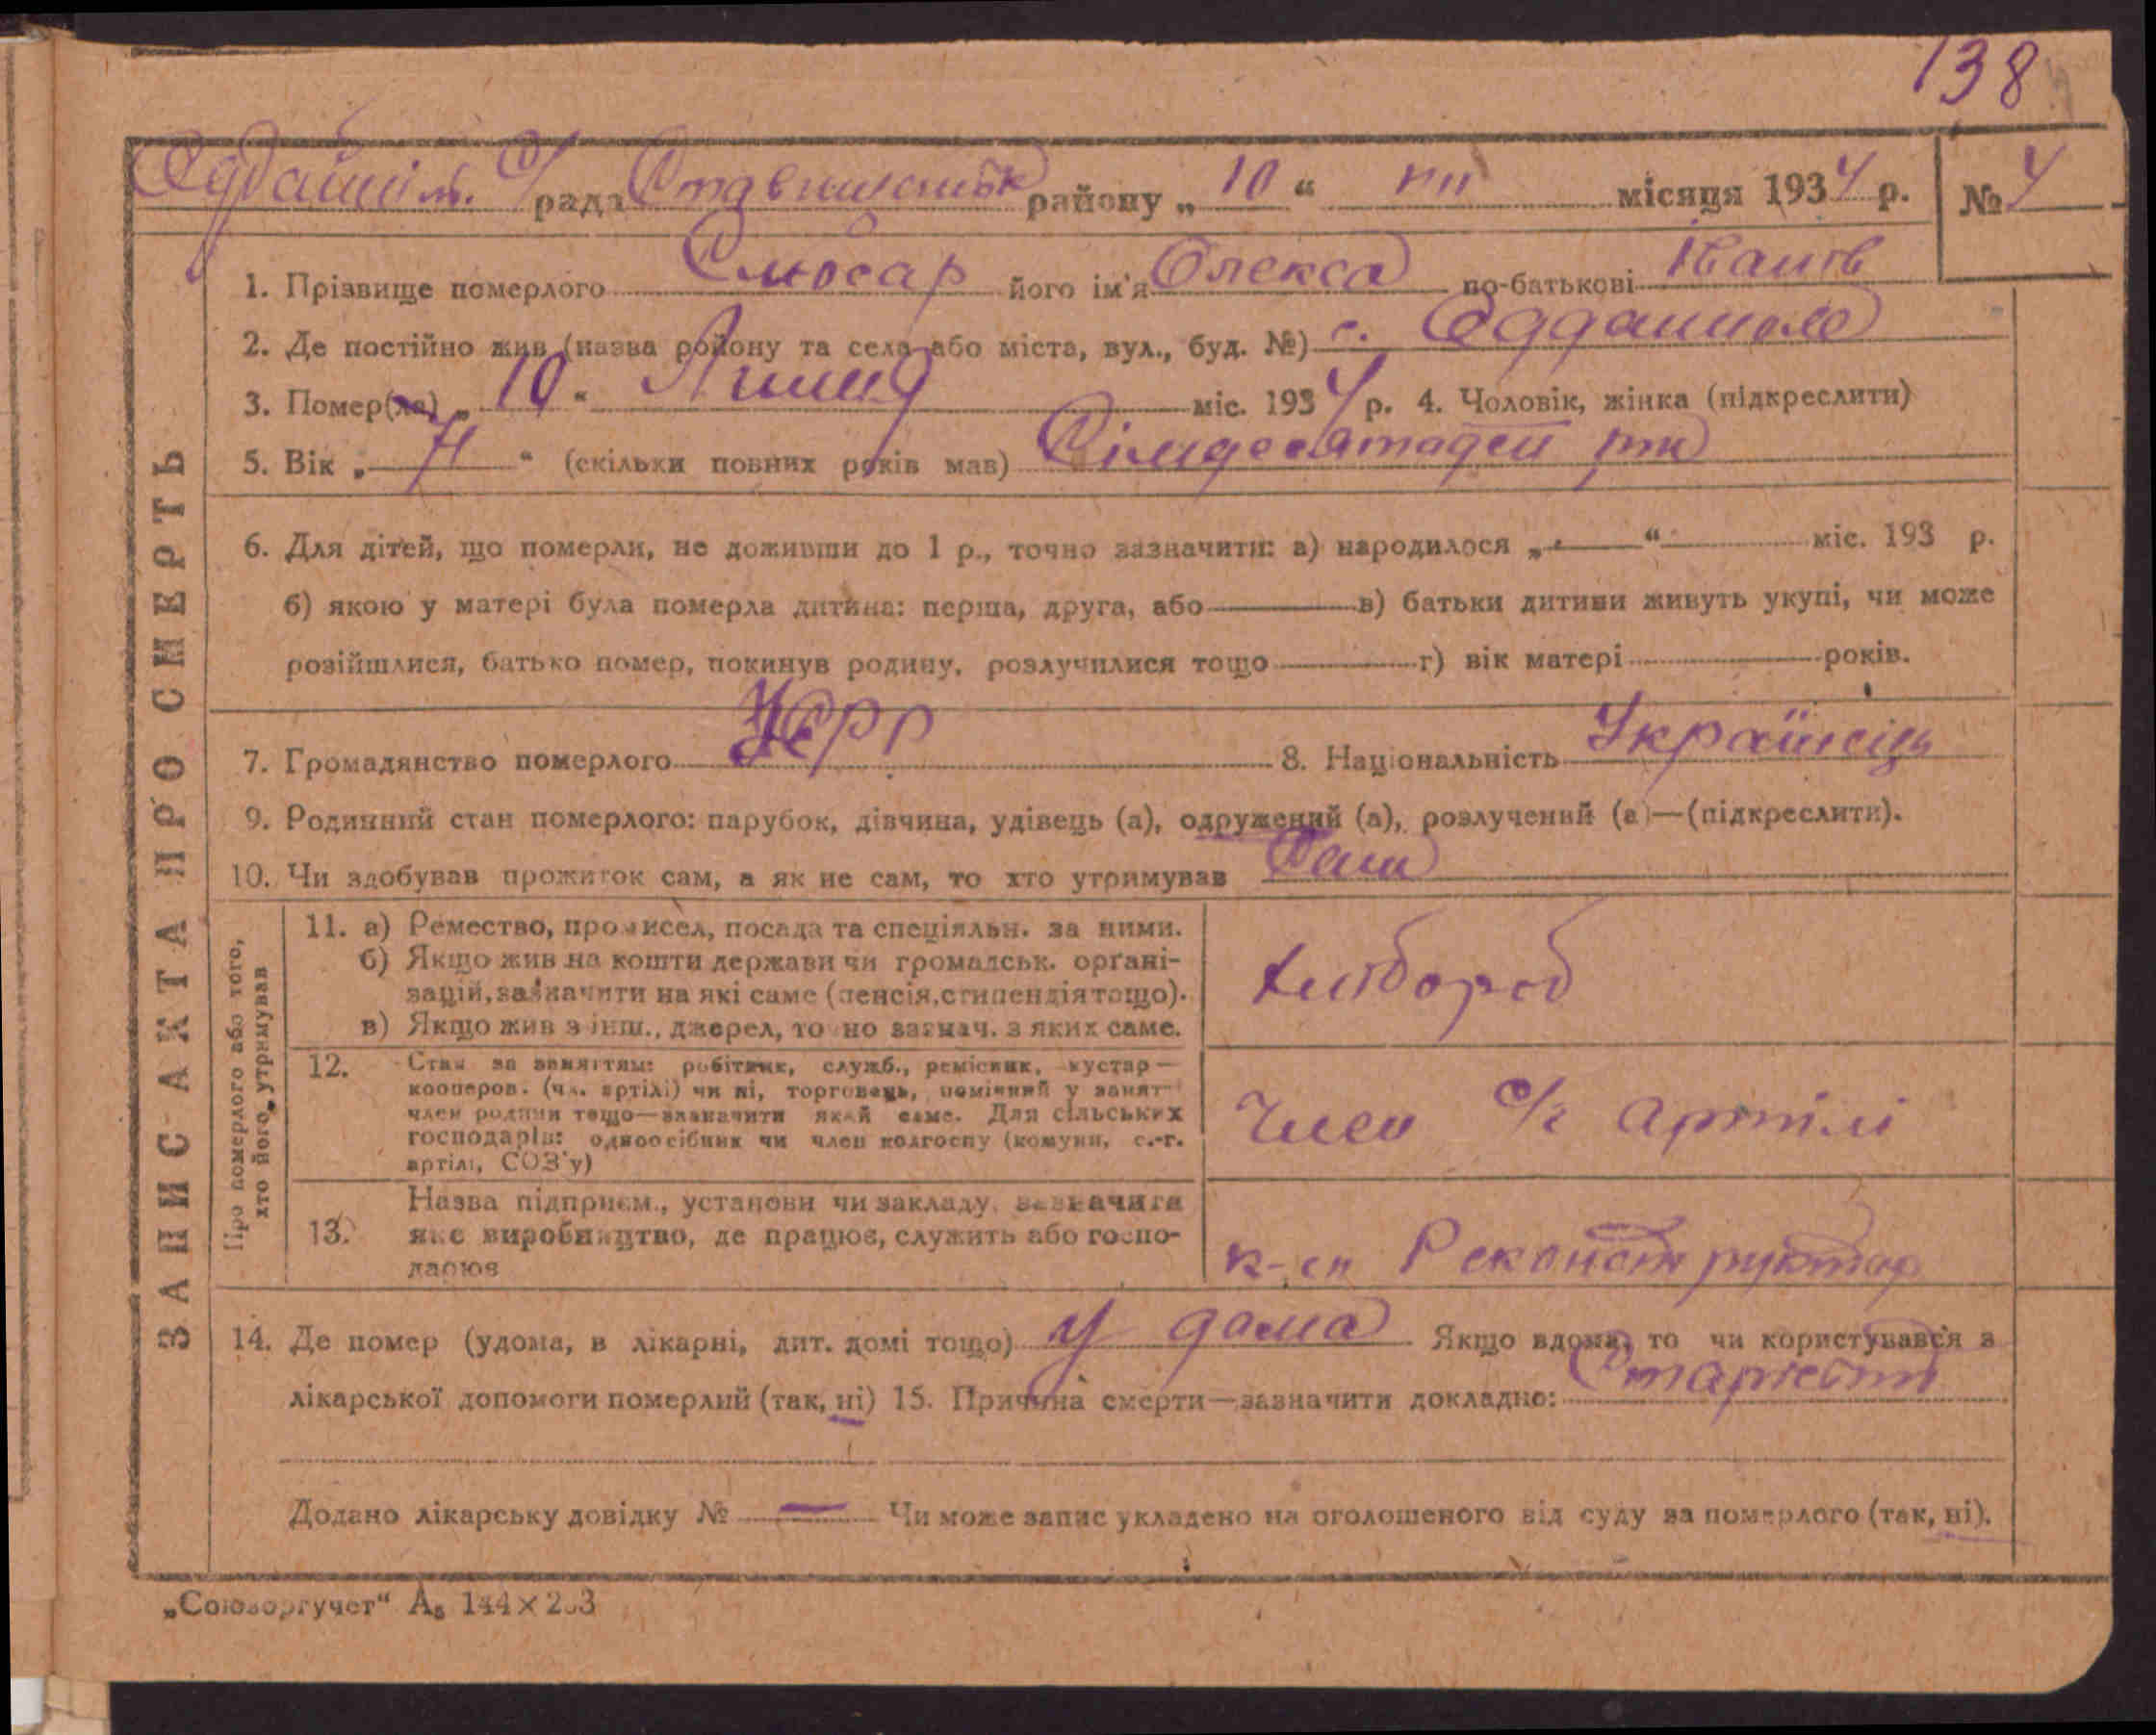 138
рада Ставищанськ району „ 10 “ VII місяця 1934 р. № 4
1. Прізвище померлого Слюсар його ім'я Олекса по-батькові Іванов
2. Де постійно жив (назва району та села або міста, вул., буд. №) с.
3. Помер(ла) „ 10 “ Липня міс. 1934 р. 4. Чоловік, жінка (підкреслити)
5. Вік „ 71 “ (скільки повних років мав) рік
6. Для дітей, що померли, не доживши до 1 р., точно зазначити: а) народилося „ — “ міс. 193 р.
б) якою у матері була померла дитина: перша, друга, або — в) батьки дитини живуть укупі, чи може
розійшлися, батько помер, покинув родину, розлучилися тощо — г) вік матері — років.
7. Громадянство померлого УСРР 8. Національність Українець
9. Родинний стан померлого: парубок, дівчина, удівець (а), одружений (а), розлучений (а)—(підкреслити).
10. Чи здобував прожиток сам, а як не сам, то хто утримував Сам
ЗАПИС АКТА ПРО СМЕРТЬ
Про померлого або того,
хто його утримував
11. а) Ремество, промисел, посада та спеціяльн. за ними.
б) Якщо жив на кошти держави чи громадськ. орґані-
зацій, зазначити на які саме (пенсія, стипендія тощо).
в) Якщо жив з інш., джерел, точно зазнач. з яких саме.
Хлібороб
12. Стан за заняттям: робітник, служб., ремісник, кустар—
кооперов. (чл. артілі) чи ні, торговець, помічний у занят-
член родини тощо—зазначити який саме. Для сільських
господарів: одноосібник чи член колгоспу (комуни, с.-г.
артілі, СОЗ'у)
Член с/г артілі
13. Назва підприєм., установи чи закладу, зазначити
яке виробництво, де працює, служить або госпо-
дарює
к-сп Реконструктор
14. Де помер (удома, в лікарні, дит. домі тощо) У дома Якщо вдома, то чи користувався з
лікарської допомоги померлий (так, ні) 15. Причина смерти—зазначити докладно:
Додано лікарську довідку № — Чи може запис укладено на оголошеного від суду за померлого (так, ні).
„Союзоргучет“ А₅ 144×203